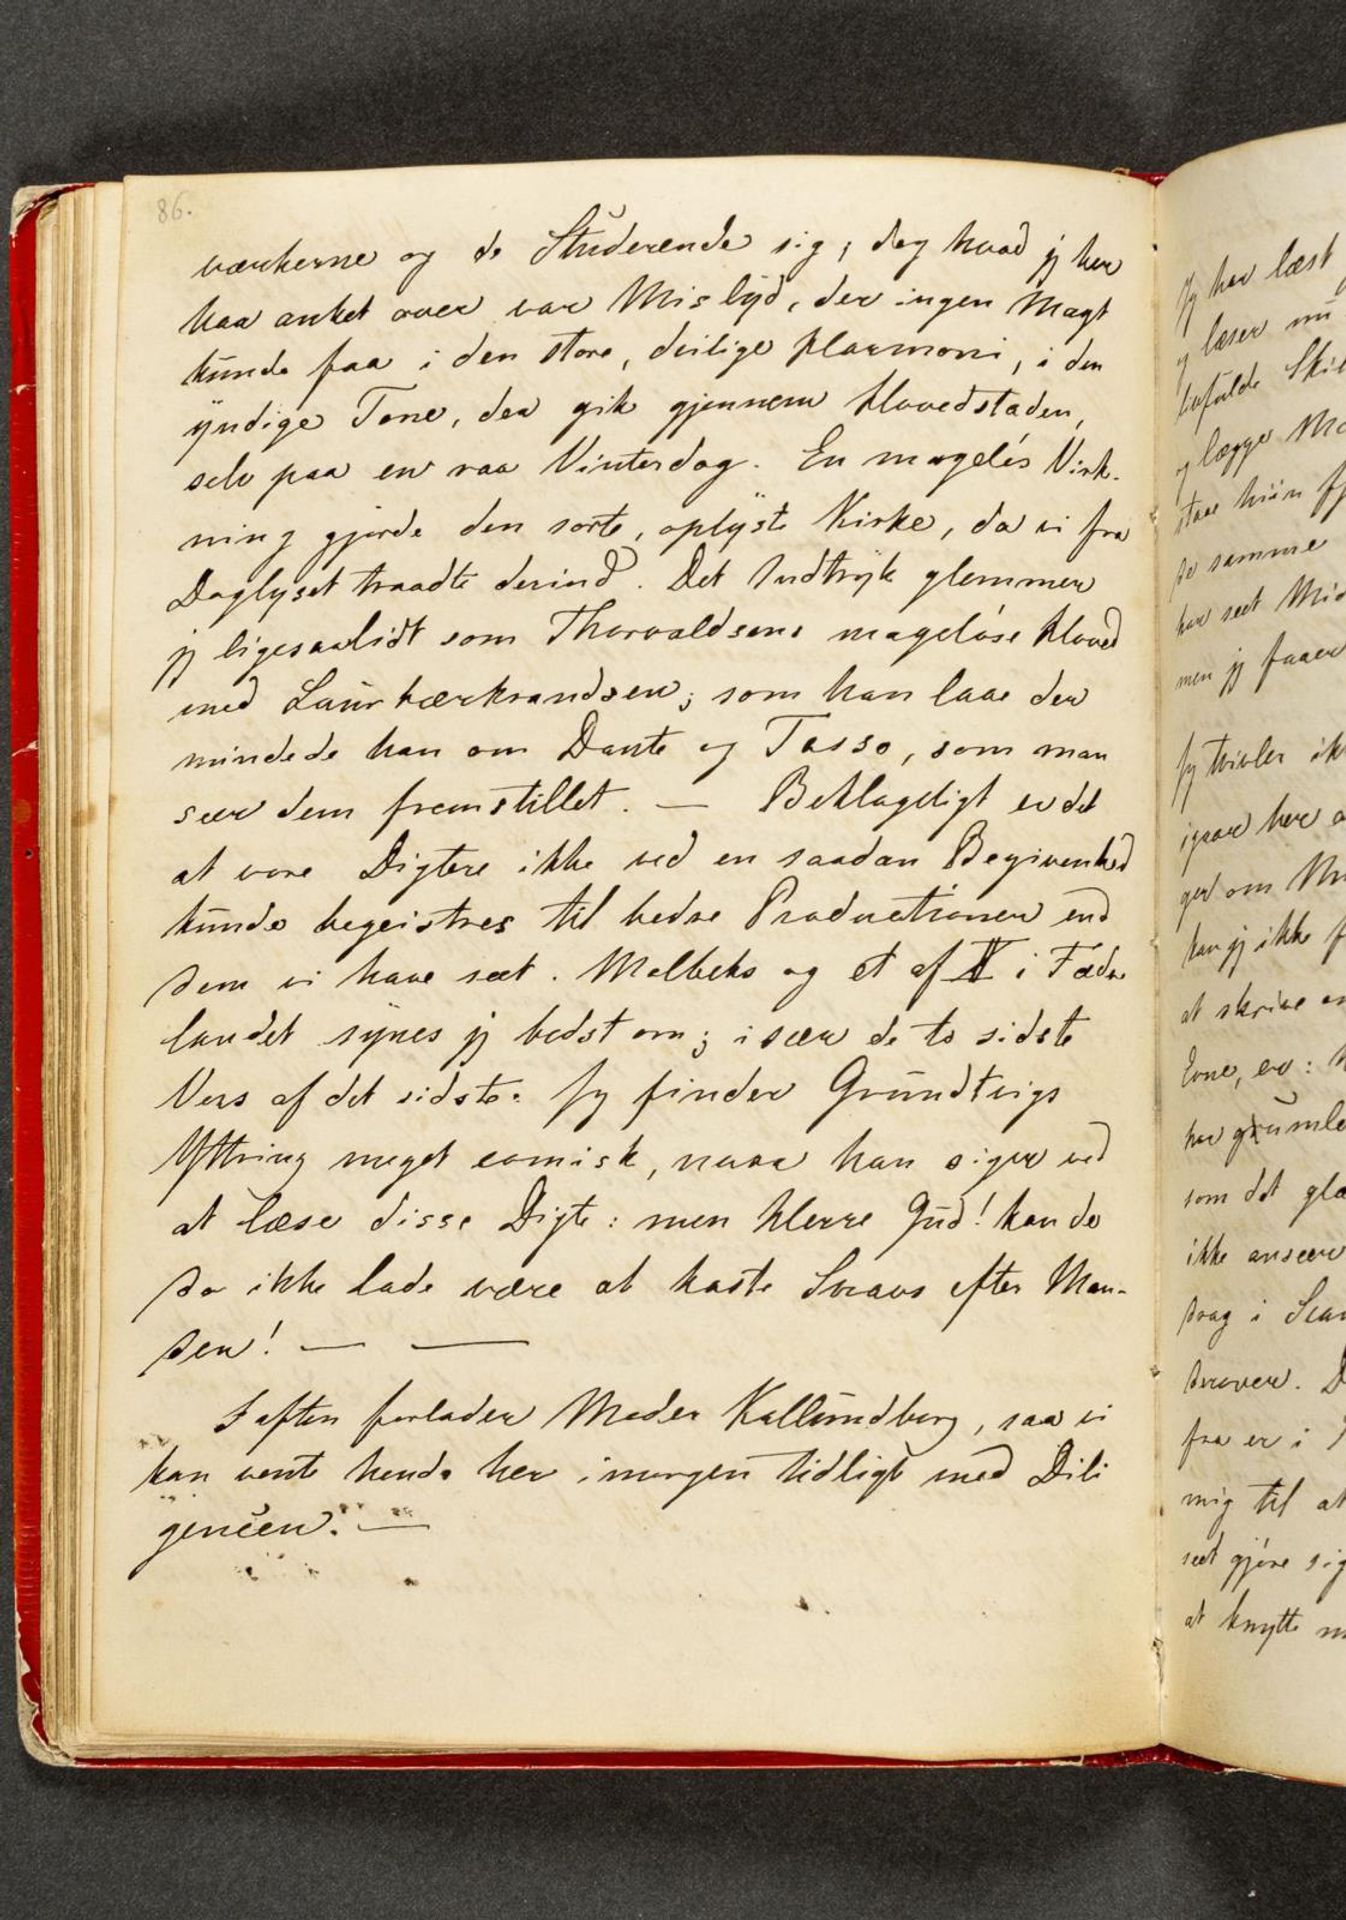 86.
værkerne og de Studerende sig; dog hvad jeg her
haa anket over var Mislyd, der ingen Magt
kunde faa i den store, deilige Harmoni, i den
yndige Tone, der gik gjennem Hovedstaden,
selv paa en raa Vinterdag. En mageløs Virk-
ning gjorde den sorte, oplyste Kirke, da vi fra
Daglyset traadte derind. Det Indtryk glemmer
jeg ligesaalidt som Thorvaldsens mageløse Hoved
med Laurbærkrandsen; som han laae der
mindede han om Dante og Tasso, som man
seer dem fremstillet. — Beklageligt er det
at vore Digtere ikke ved en saadan Begivenhed
kunde begeistres til bedre Productioner end
dem vi have seet. Molbechs og et af T i Fædre
landet synes jeg bedst om; især de to sidste
Vers af det sidste. Jeg finder Grundtvigs
Yttring meget comisk, naar han siger ved
at læse disse Digte: men Herre Gud! kan de
da ikke lade være at kaste Skarns efter Man-
den! — —
I aften forlader Moder Kallundborg, saa vi
kan vente hende her imorgen tidligt med Dili
gencen. —
Jeg har læst
og læser nu
og lægge
staae hiin
de samme
har seet
men jeg faaer
Jeg tvivler
igaar her
ger om
kan jeg ikke
at skrive
Evne, er:
har grumle
som det
ikke anseer
drag i
derover.
fra er i
mig til at
seet gjøre sig
at knytte